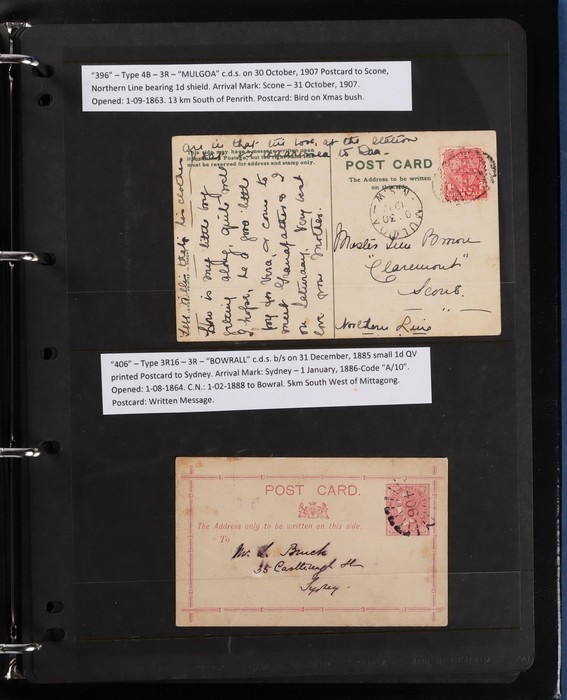 "396" – Type 4B – 3R – "MULGOA" c.d.s. on 30 October, 1907 Postcard to Scone,
Northern Line bearing 1d shield. Arrival Mark: Scone – 31 October, 1907.
Opened: 1-09-1863. 13 km South of Penrith. Postcard: Bird on Xmas bush.
are is that this box, at the station
to
must be reserved for address and stamp only.
How is my little boy
getting along, quite well
I hope, be a good little
boy for Nina, & come to
meet Grandfather & I
on Saturday. Very best
love from Mother.
POST CARD
The Address to be written
on this side.
MULGOA
N.S.W
Master
"Claremont"
Scone.
Northern Line
"406" – Type 3R16 – 3R – "BOWRALL" c.d.s. b/s on 31 December, 1885 small 1d QV
printed Postcard to Sydney. Arrival Mark: Sydney – 1 January, 1886-Code "A/10".
Opened: 1-08-1864. C.N.: 1-02-1888 to Bowral. 5km South West of Mittagong.
Postcard: Written Message.
POST CARD.
The Address only to be written on this side.
To
406
Mr. S. Bruck
35 Castlereagh St
Sydney.